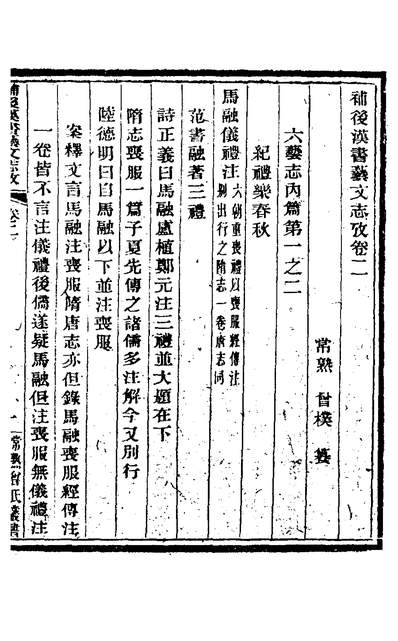 補後漢書藝文志攷卷二
常熟 曾樸 纂
六藝志內篇第一之二
紀禮樂春秋
馬融儀禮注六朝重喪禮以喪服經傳注別出行之隋志一卷唐志同
范書融著三禮
詩正義曰馬融盧植鄭元注三禮並大題在下
隋志喪服一篇子夏先傳之諸儒多注解今又別行
陸德明曰自馬融以下並注喪服
案釋文言馬融注喪服隋唐志亦但錄馬融喪服經傳注
一卷皆不言注儀禮後儒遂疑馬融但注喪服無儀禮注
補後漢書藝文志攷
卷二
一
常熟曾氏叢書